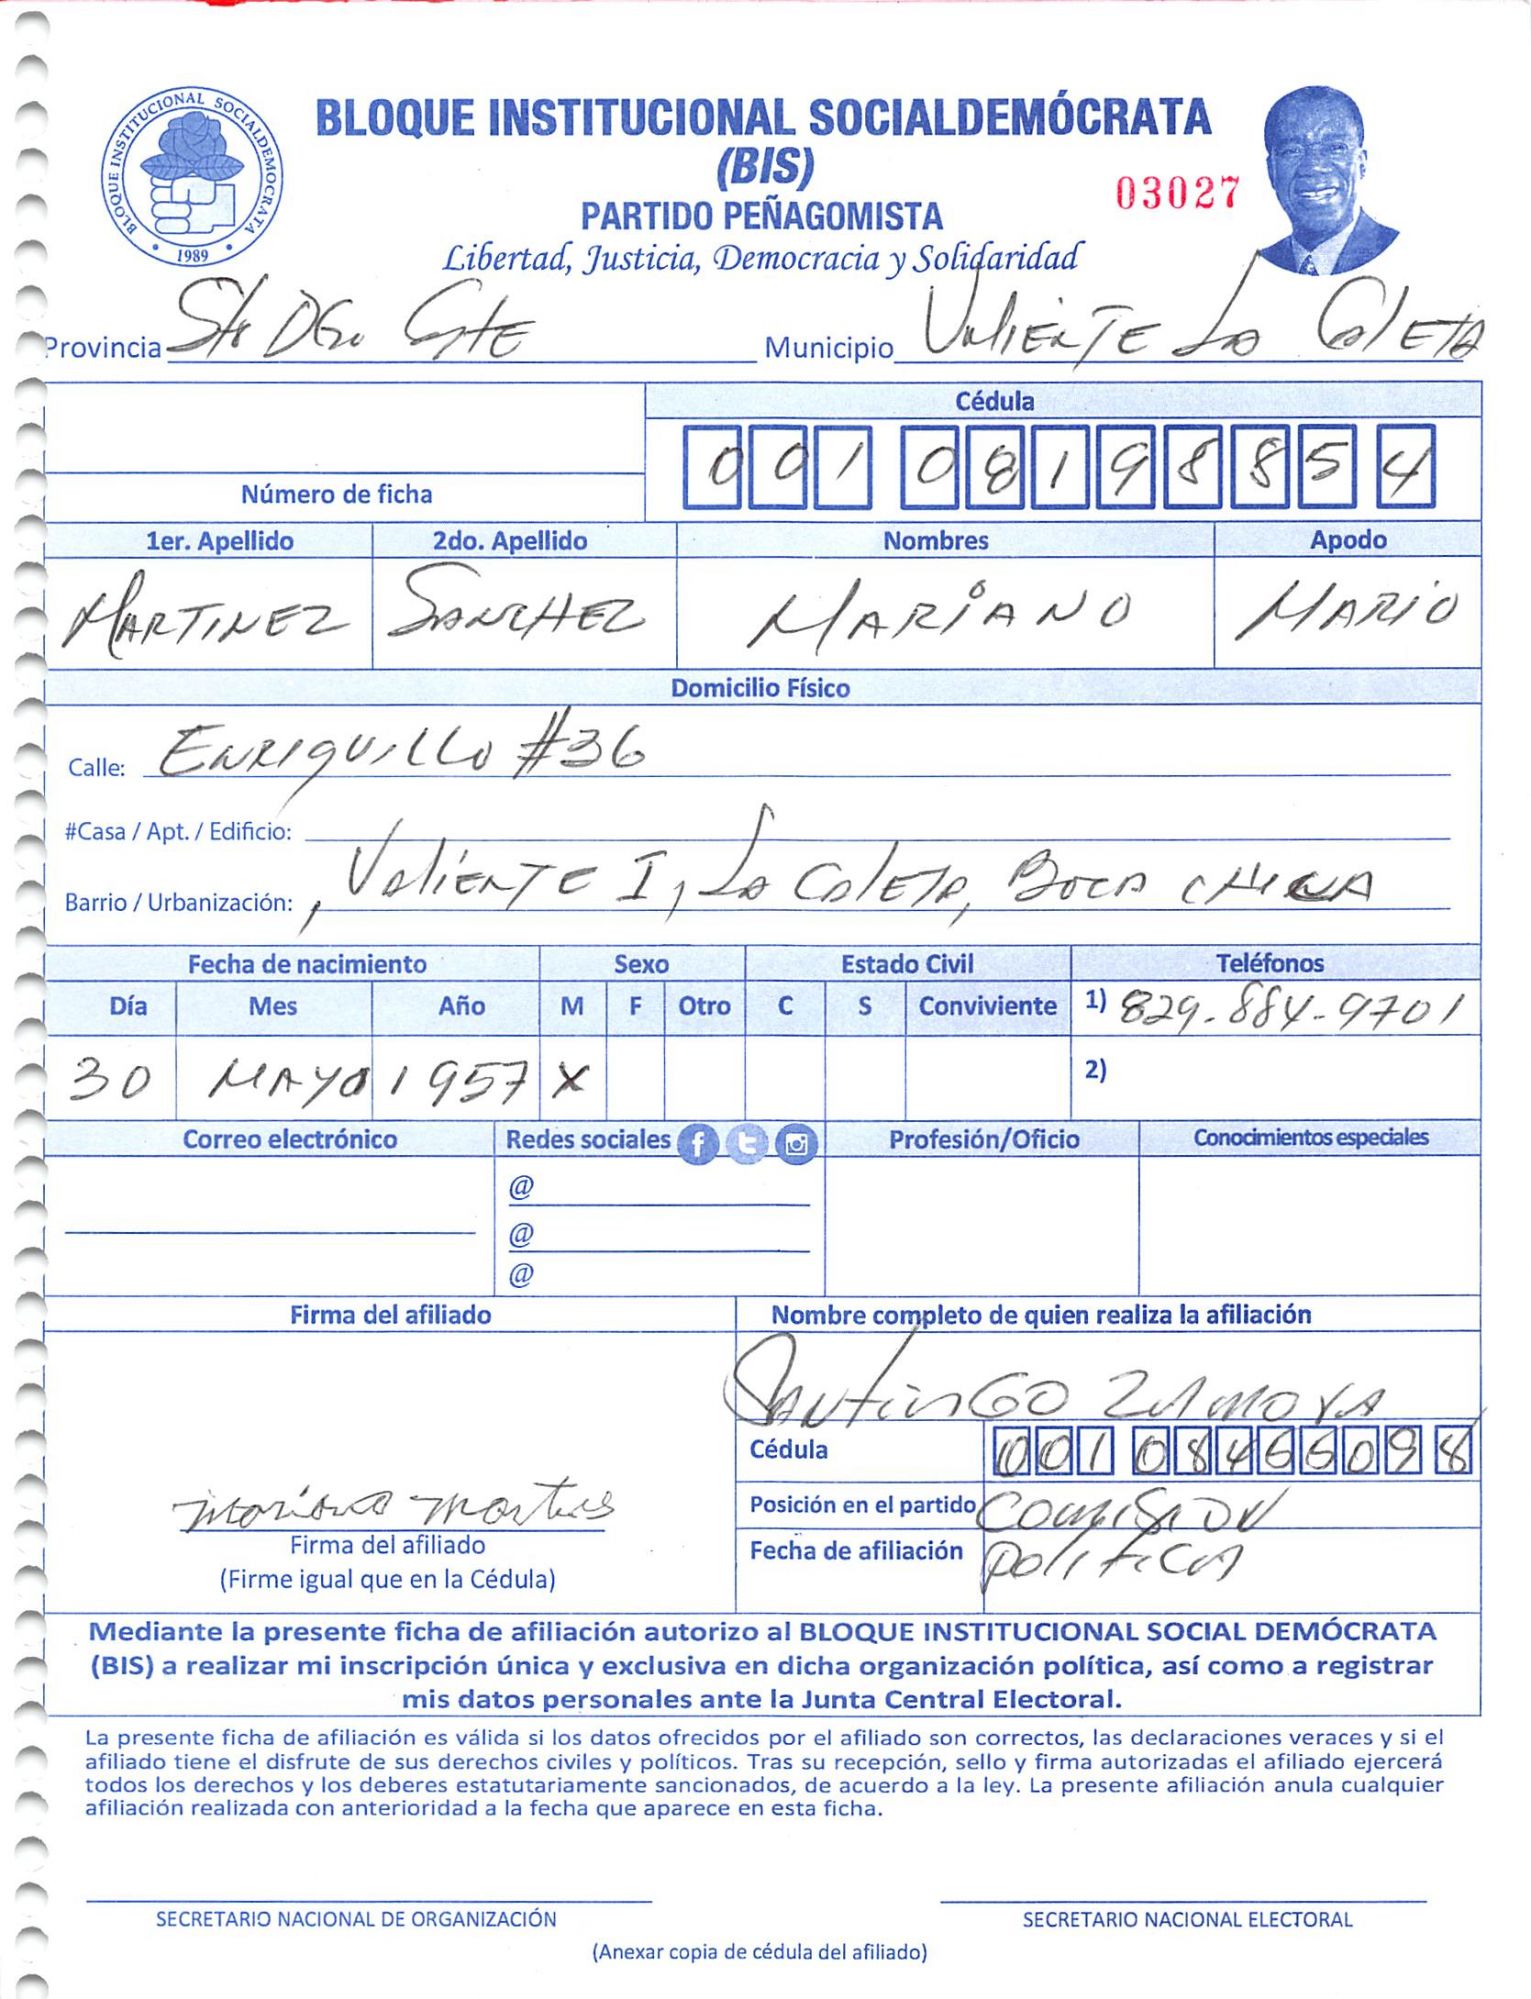 BLOQUE INSTITUCIONAL SOCIALDEMOCRATA
1989
BLOQUE INSTITUCIONAL SOCIALDEMÓCRATA
(BIS)
03027
PARTIDO PEÑAGOMISTA
Libertad, Justicia, Democracia y Solidaridad
Provincia Sto DGo EstE Municipio VALiENTE LA CALETA
Cédula
001 0819885 4
Número de ficha
1er. Apellido 2do. Apellido Nombres Apodo
MARTINEZ SANCHEZ MARIANO MARIO
Domicilio Físico
Calle: ENRIQUILLO #36
#Casa / Apt. / Edificio:
Barrio / Urbanización: , VALiENTE I, LA CALETA, BOCA CHICA
Fecha de nacimiento Sexo Estado Civil Teléfonos
Día Mes Año M F Otro C S Conviviente 1) 829-884-9701
30 MAYO 1957 X 2)
Correo electrónico Redes sociales Profesión/Oficio Conocimientos especiales
@
@
@
Firma del afiliado Nombre completo de quien realiza la afiliación
SANTIAGO ZAMORA
Cédula 001 0845509 8
mariano martines Posición en el partido COMISION
Firma del afiliado Fecha de afiliación POLITICA
(Firme igual que en la Cédula)
Mediante la presente ficha de afiliación autorizo al BLOQUE INSTITUCIONAL SOCIAL DEMÓCRATA
(BIS) a realizar mi inscripción única y exclusiva en dicha organización política, así como a registrar
mis datos personales ante la Junta Central Electoral.
La presente ficha de afiliación es válida si los datos ofrecidos por el afiliado son correctos, las declaraciones veraces y si el
afiliado tiene el disfrute de sus derechos civiles y políticos. Tras su recepción, sello y firma autorizadas el afiliado ejercerá
todos los derechos y los deberes estatutariamente sancionados, de acuerdo a la ley. La presente afiliación anula cualquier
afiliación realizada con anterioridad a la fecha que aparece en esta ficha.
SECRETARIO NACIONAL DE ORGANIZACIÓN SECRETARIO NACIONAL ELECTORAL
(Anexar copia de cédula del afiliado)